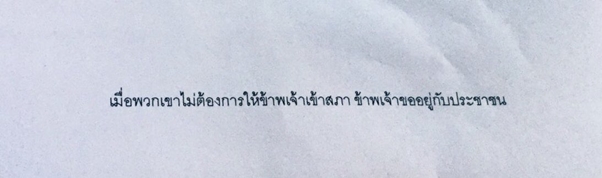 เมื่อพวกเขาไม่ต้องการให้ข้าพเจ้าเข้าสภา ข้าพเจ้าขออยู่กับประชาชน